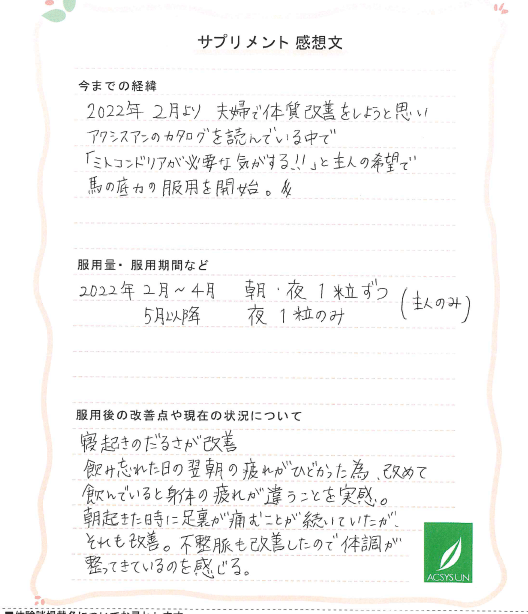 サプリメント 感想文
今までの経緯
2022年 2月より 夫婦で体質改善をしようと思い
アクシスアンのカタログを読んでいる中で
「ミトコンドリアが必要な気がする!!」と主人の希望で
馬の底力の服用を開始。
服用量・服用期間など
2022年2月～4月 朝・夜 1粒ずつ (主人のみ)
5月以降 夜 1粒のみ
服用後の改善点や現在の状況について
寝起きのだるさが改善
飲み忘れた日の翌朝の疲れがひどかった為、改めて
飲んでいると身体の疲れが違うことを実感。
朝起きた時に足裏が痛むことが続いていたが、
それも改善。不整脈も改善したので体調が
整ってきているのを感じる。
ACSYS UN